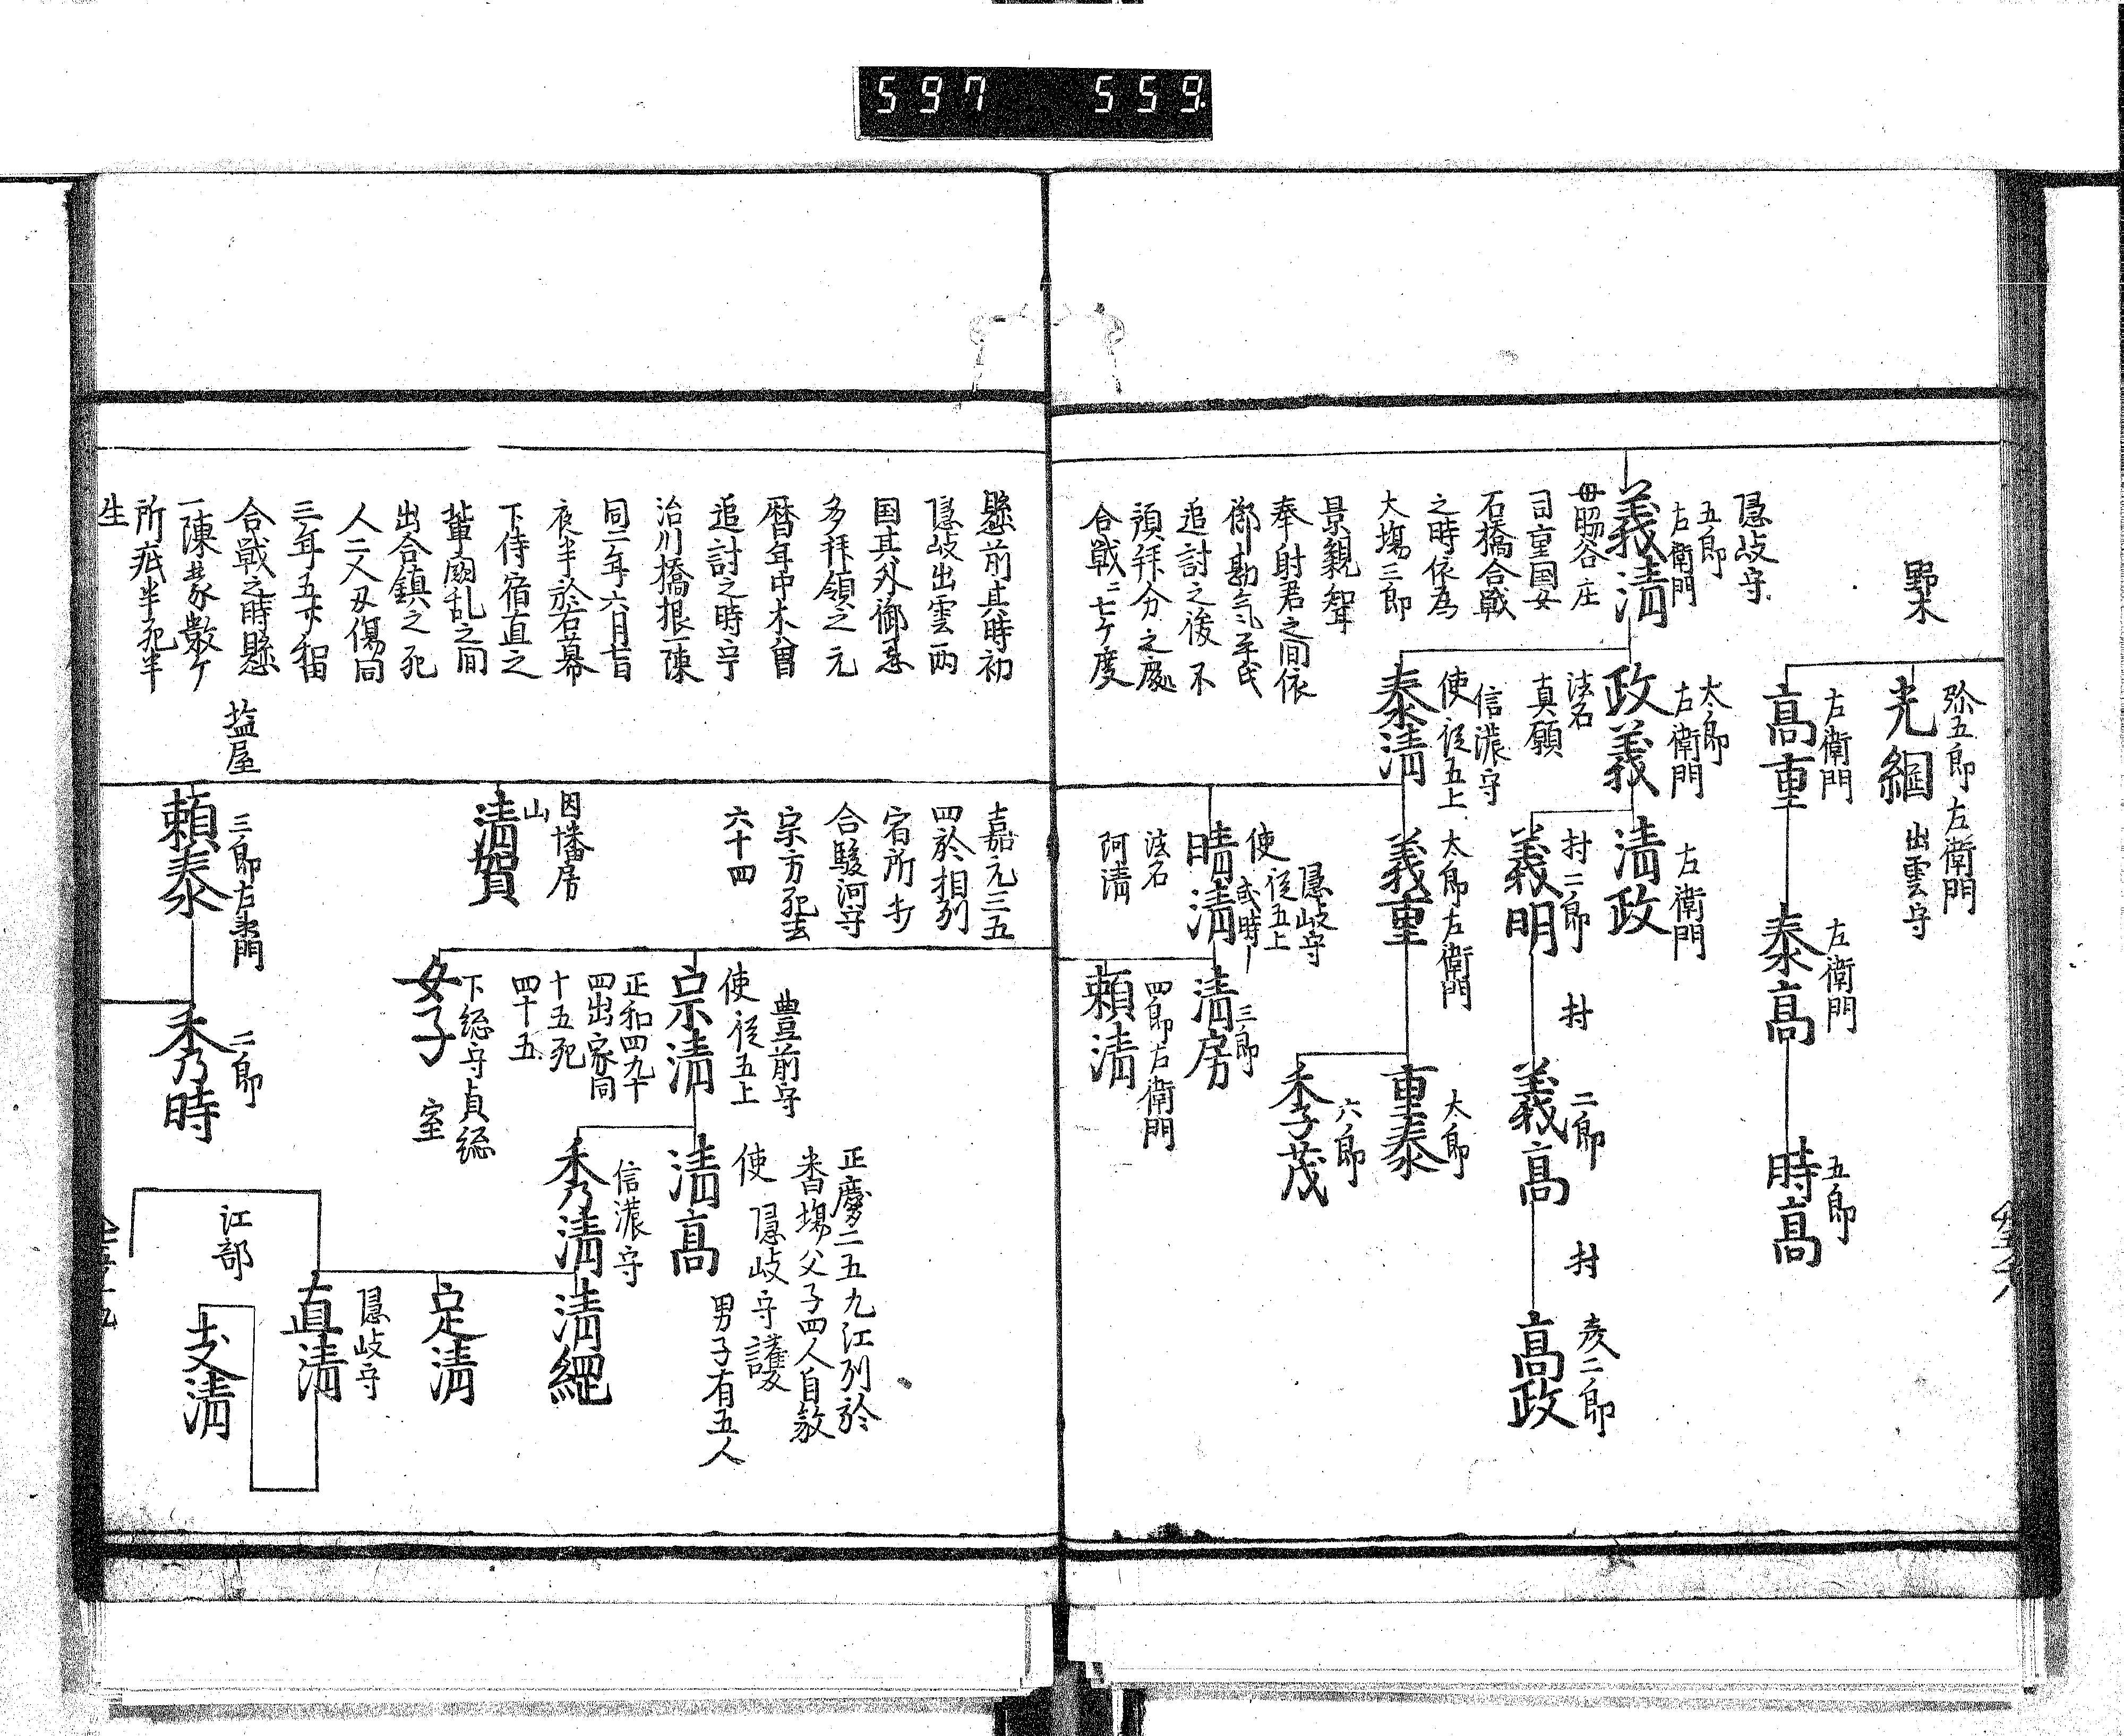 597 559
野木
弥五郎 左衛門
出雲守
光綱
左衛門
高重
左衛門
泰高
五郎
時高
隠岐守
五郎
左衛門
義清
母昵谷庄
司重国女
石橋合戦
之時依為
大塲三郎
景親聟
奉射君之間依
御勘気平氏
追討之後不
預拜分之處
合戦二七ケ度
太郎
左衛門
政義
法名
真願
左衛門
清政
村二郎
義明
村
二郎
義高
村
彦二郎
高政
信濃守
使従五上
泰清
太郎左衛門
義重
太郎
重泰
六郎
季茂
隠岐守
使従五上
或時ー
時清
法名
阿清
三郎
清房
四郎左衛門
頼清
懸前其時初
隠岐出雲両
国其外御恩
多拜領之元
暦年中木曽
追討之時宇
治川橋根一陳
夜半於若幕
下侍宿直之
輩闘乱之間
出合鎮之死
人二又刃傷同
合戦之時懸
一陳蒙数ケ
所疵半死半
生
嘉元三五
四於相列
宿所
合駿河守
宗方死去
六十四
豊前守
使従五上
宗清
正和四九十
四出家同
十五死
四十五
正慶二五九江列於
番塲父子四人自敘
使 隠岐守護
男子有五人
清高
信濃守
秀清
清綱
定清
隠岐守
直清
江部
女子
下総守貞総
室
因幡房
山
清賀
塩屋
三郎左衛門
頼泰
二郎
秀時